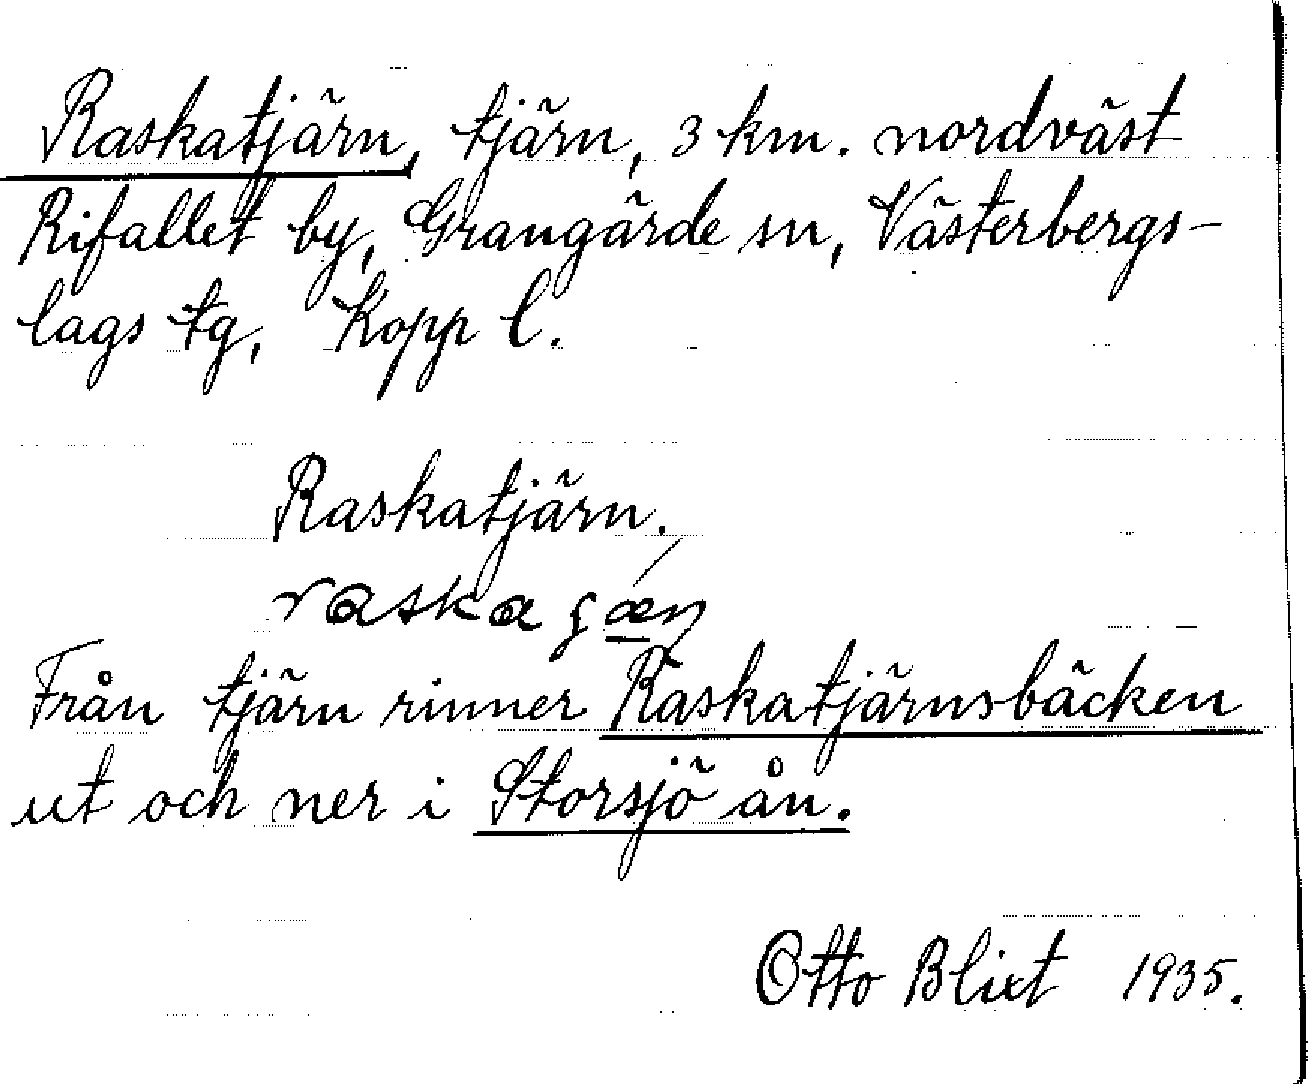 Raskatjärn, tjärn, 3 km. nordväst
Rifallet by, Grangärde sn, Västerbergs-
lags tg, Kopp l.
Raskatjärn.
raska
Från tjärn rinner Raskatjärnsbäcken
ut och ner i Storsjö ån.
Otto Blixt 1935.